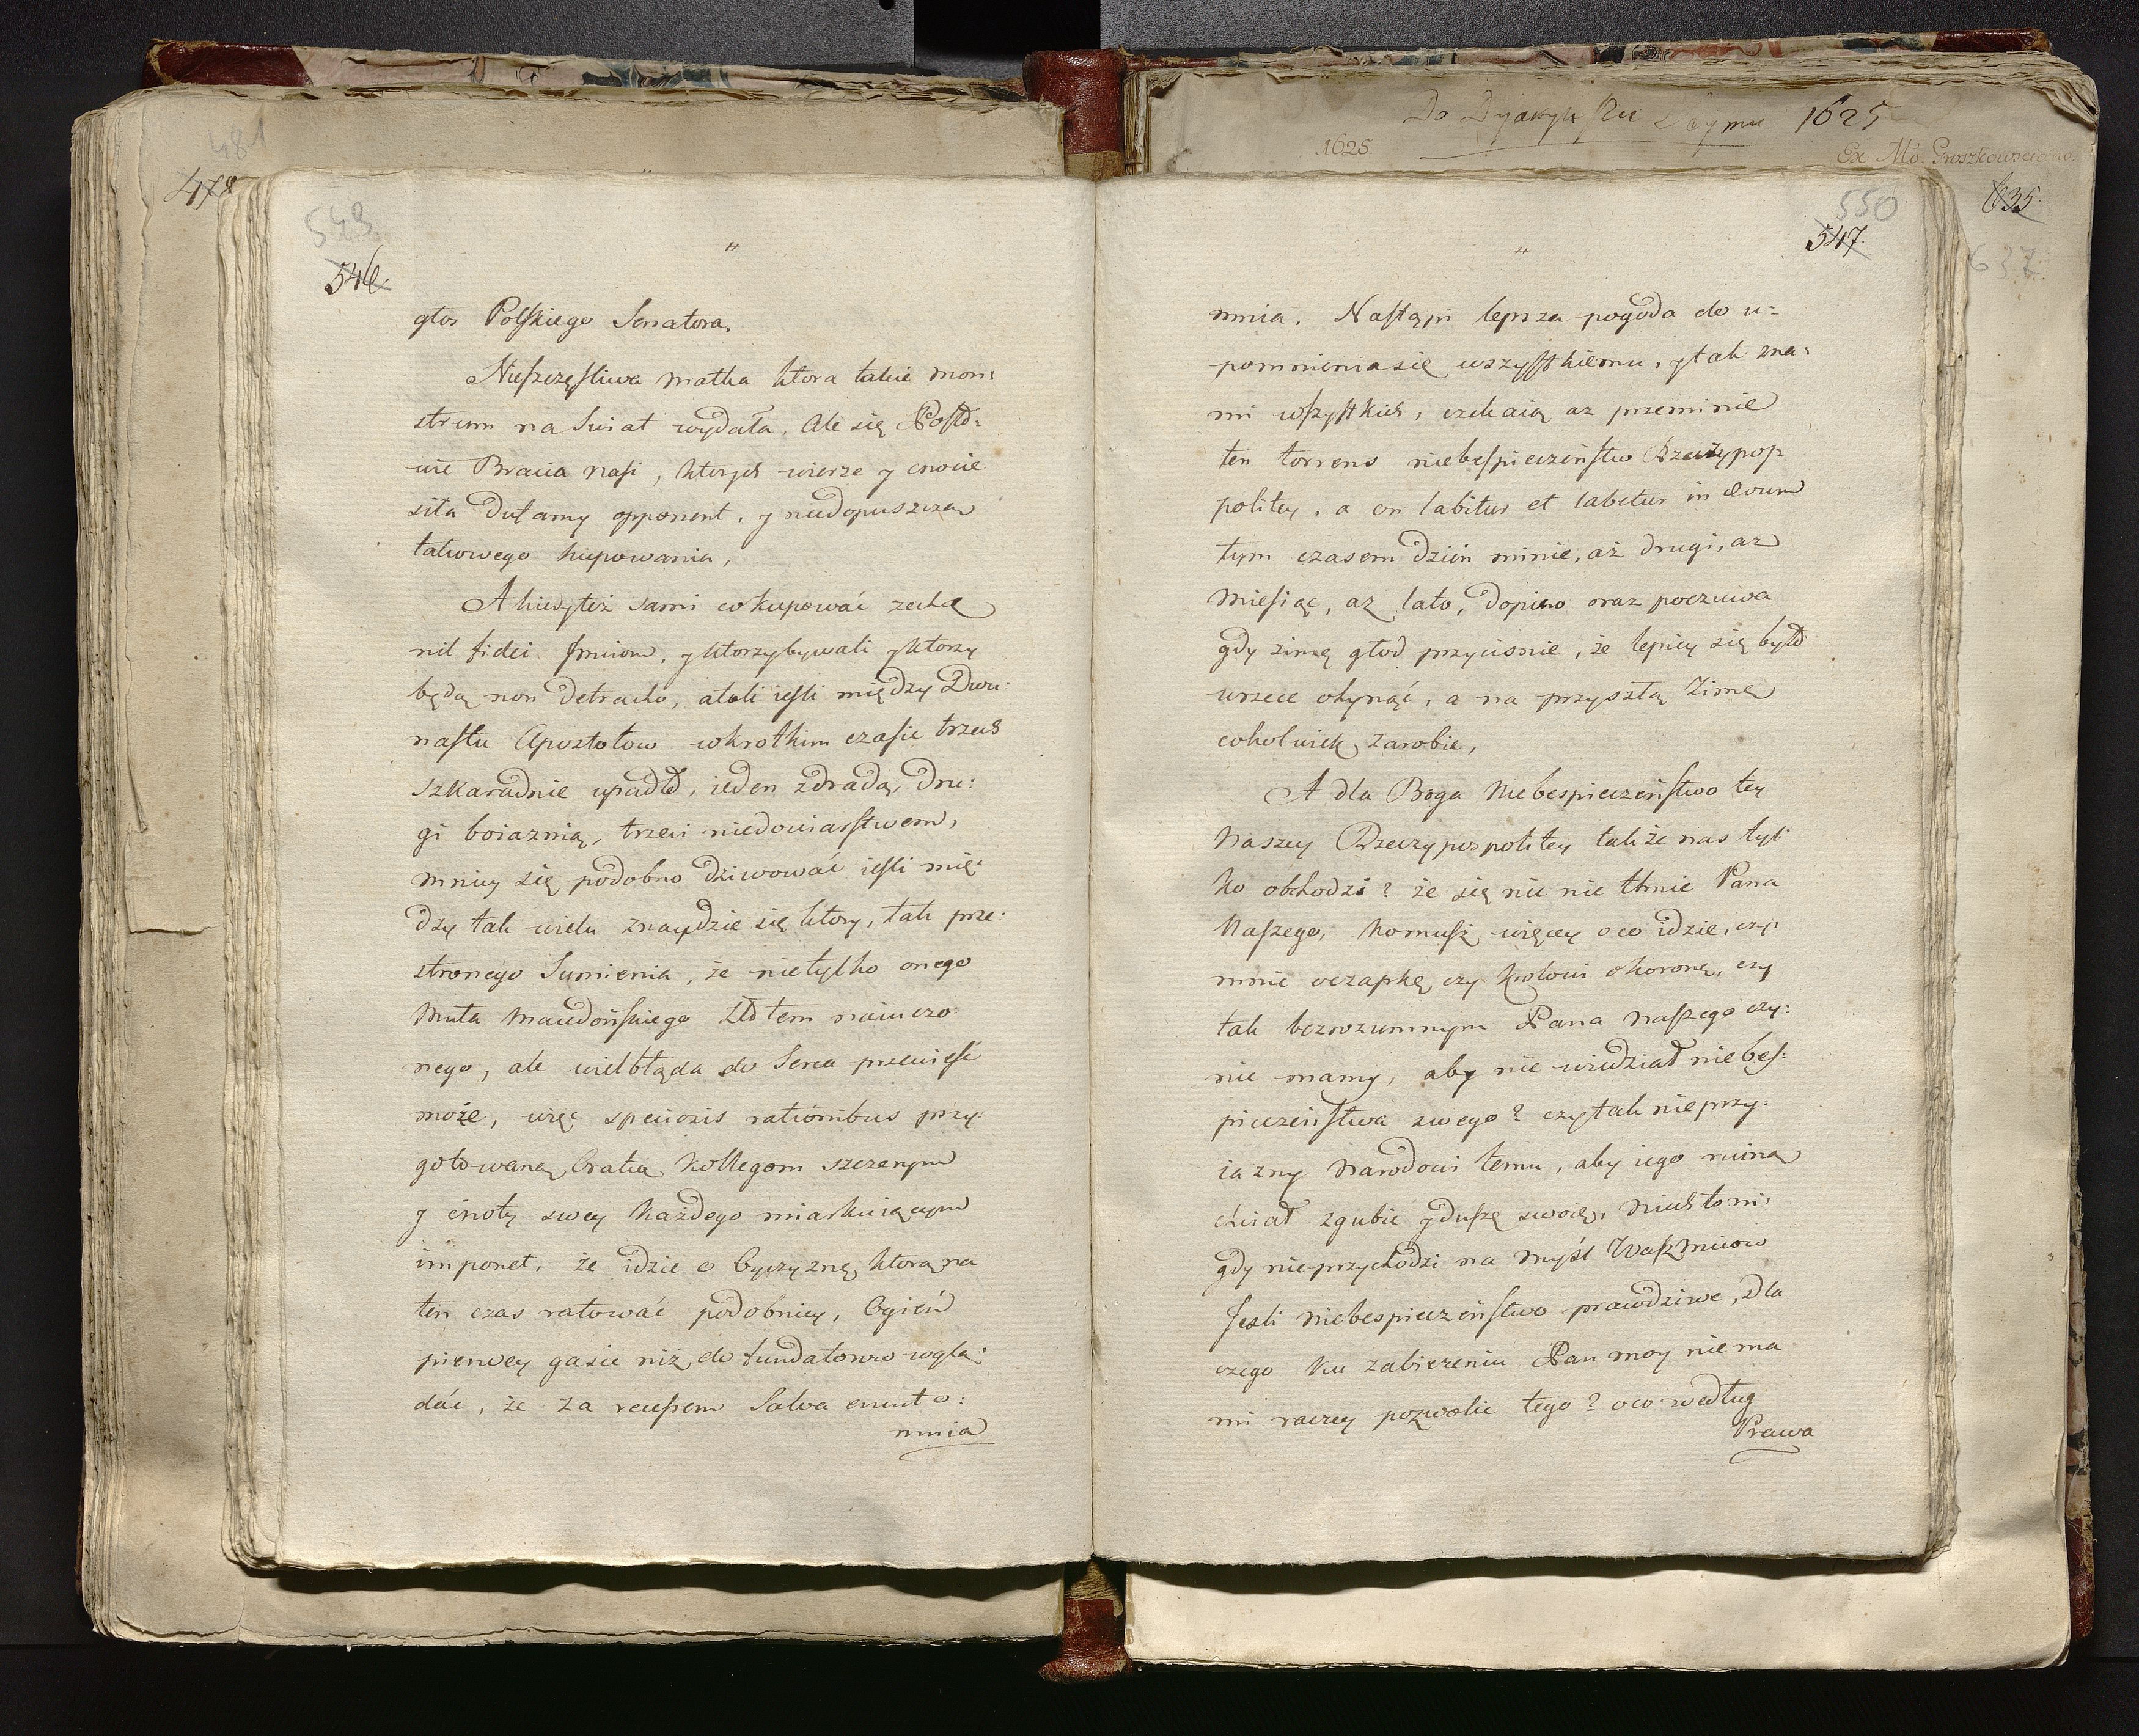 481
478
549
546.
"
głos Polſkiego Senatora,
Nieſzczęſliwa matka ktora takie mon:
strum na Swiat wydała. Ale się Poſtd:
wie Bracia naſi, ktorych wierze y cnocie
siła Dufamy opponent, y niedopuszczą
takowego kupowania,
A kiedyteż sami co kupować zechcą
nil fidei Jmciom, y ktorzybywali y ktorzy
będą non detracho, atoli ieſli między Dwu:
naſtu Apostołow wkrotkim czaſie trzech
szkaradnie upadło, ieden zdradą, Dru:
gi boiaznią, trzeci niedowiarſtwem,
mniey się podobno dziwować ieſli mię:
dzy tak wielu znaydzie się ktory, tak prze:
stronego Sumienia, że nietylko onego
Muła Macedońſkiego złotem naiuczo:
nego, ale wielbłąda do Serca przewieſć
może, więc speciosis rationibus przy:
gotowaną bratią Kollegom szczerym
y cnoty swey każdego miarkuiącym
imponet, że idzie o Oyczyznę, ktorą na
ten czas ratować podobniey, Ogień
pierwey gasić niż do fundatorow wglą:
dać, że za recessem Salva erunt o:
mnia
Do Dyaryu 1625
.1625.
635.
637.
550
547.
"
mnia. Naſtąpi lepsza pogoda do u:
pomnienia się wszyſtkiemu, y tak zna:
mi wſzyſtkich, czekaią az przeminie
ten torrens niebeſpieczeńſtw Rzeczypos
politey, a on labitur et labetur in ævum
tym czasem dzień minie, aż drugi, az
Mieſiąc, aż lato, Dopiero oraz poczuwa
gdy zimę głod przyciśnie, że lepiey się było
wrzece okynąć, a na przyszłą Zimę
cokolwiek zarobić,
A dla Boga Niebespieczeńſtwo tey
Naszey Rzeczypospolitey także nas tyl:
ko obchodzi? że się nic nie tknie Pana
Naſzego, Komuſz więcey oco idzie, czy:
mnie oczapkę, czy Krolowi okoronę, czy
tak bezrozumnym Pana Naſzego czy:
nić mamy, aby nie widział niebeſ:
pieczeńſtwa swego? czy tak nieprzy:
iazny Narodowi temu, aby iego ruiną
chciał zgubić y Duſzę swoię, niech to ni:
gdy nieprzychodzi na myśl Waſzmciow
Jeſli niebespieczeńſtwo prawdziwe, dla
czego ku zabieżeniu Pan moy niema
mi raczey pozwolić tego? oco według
Prawa